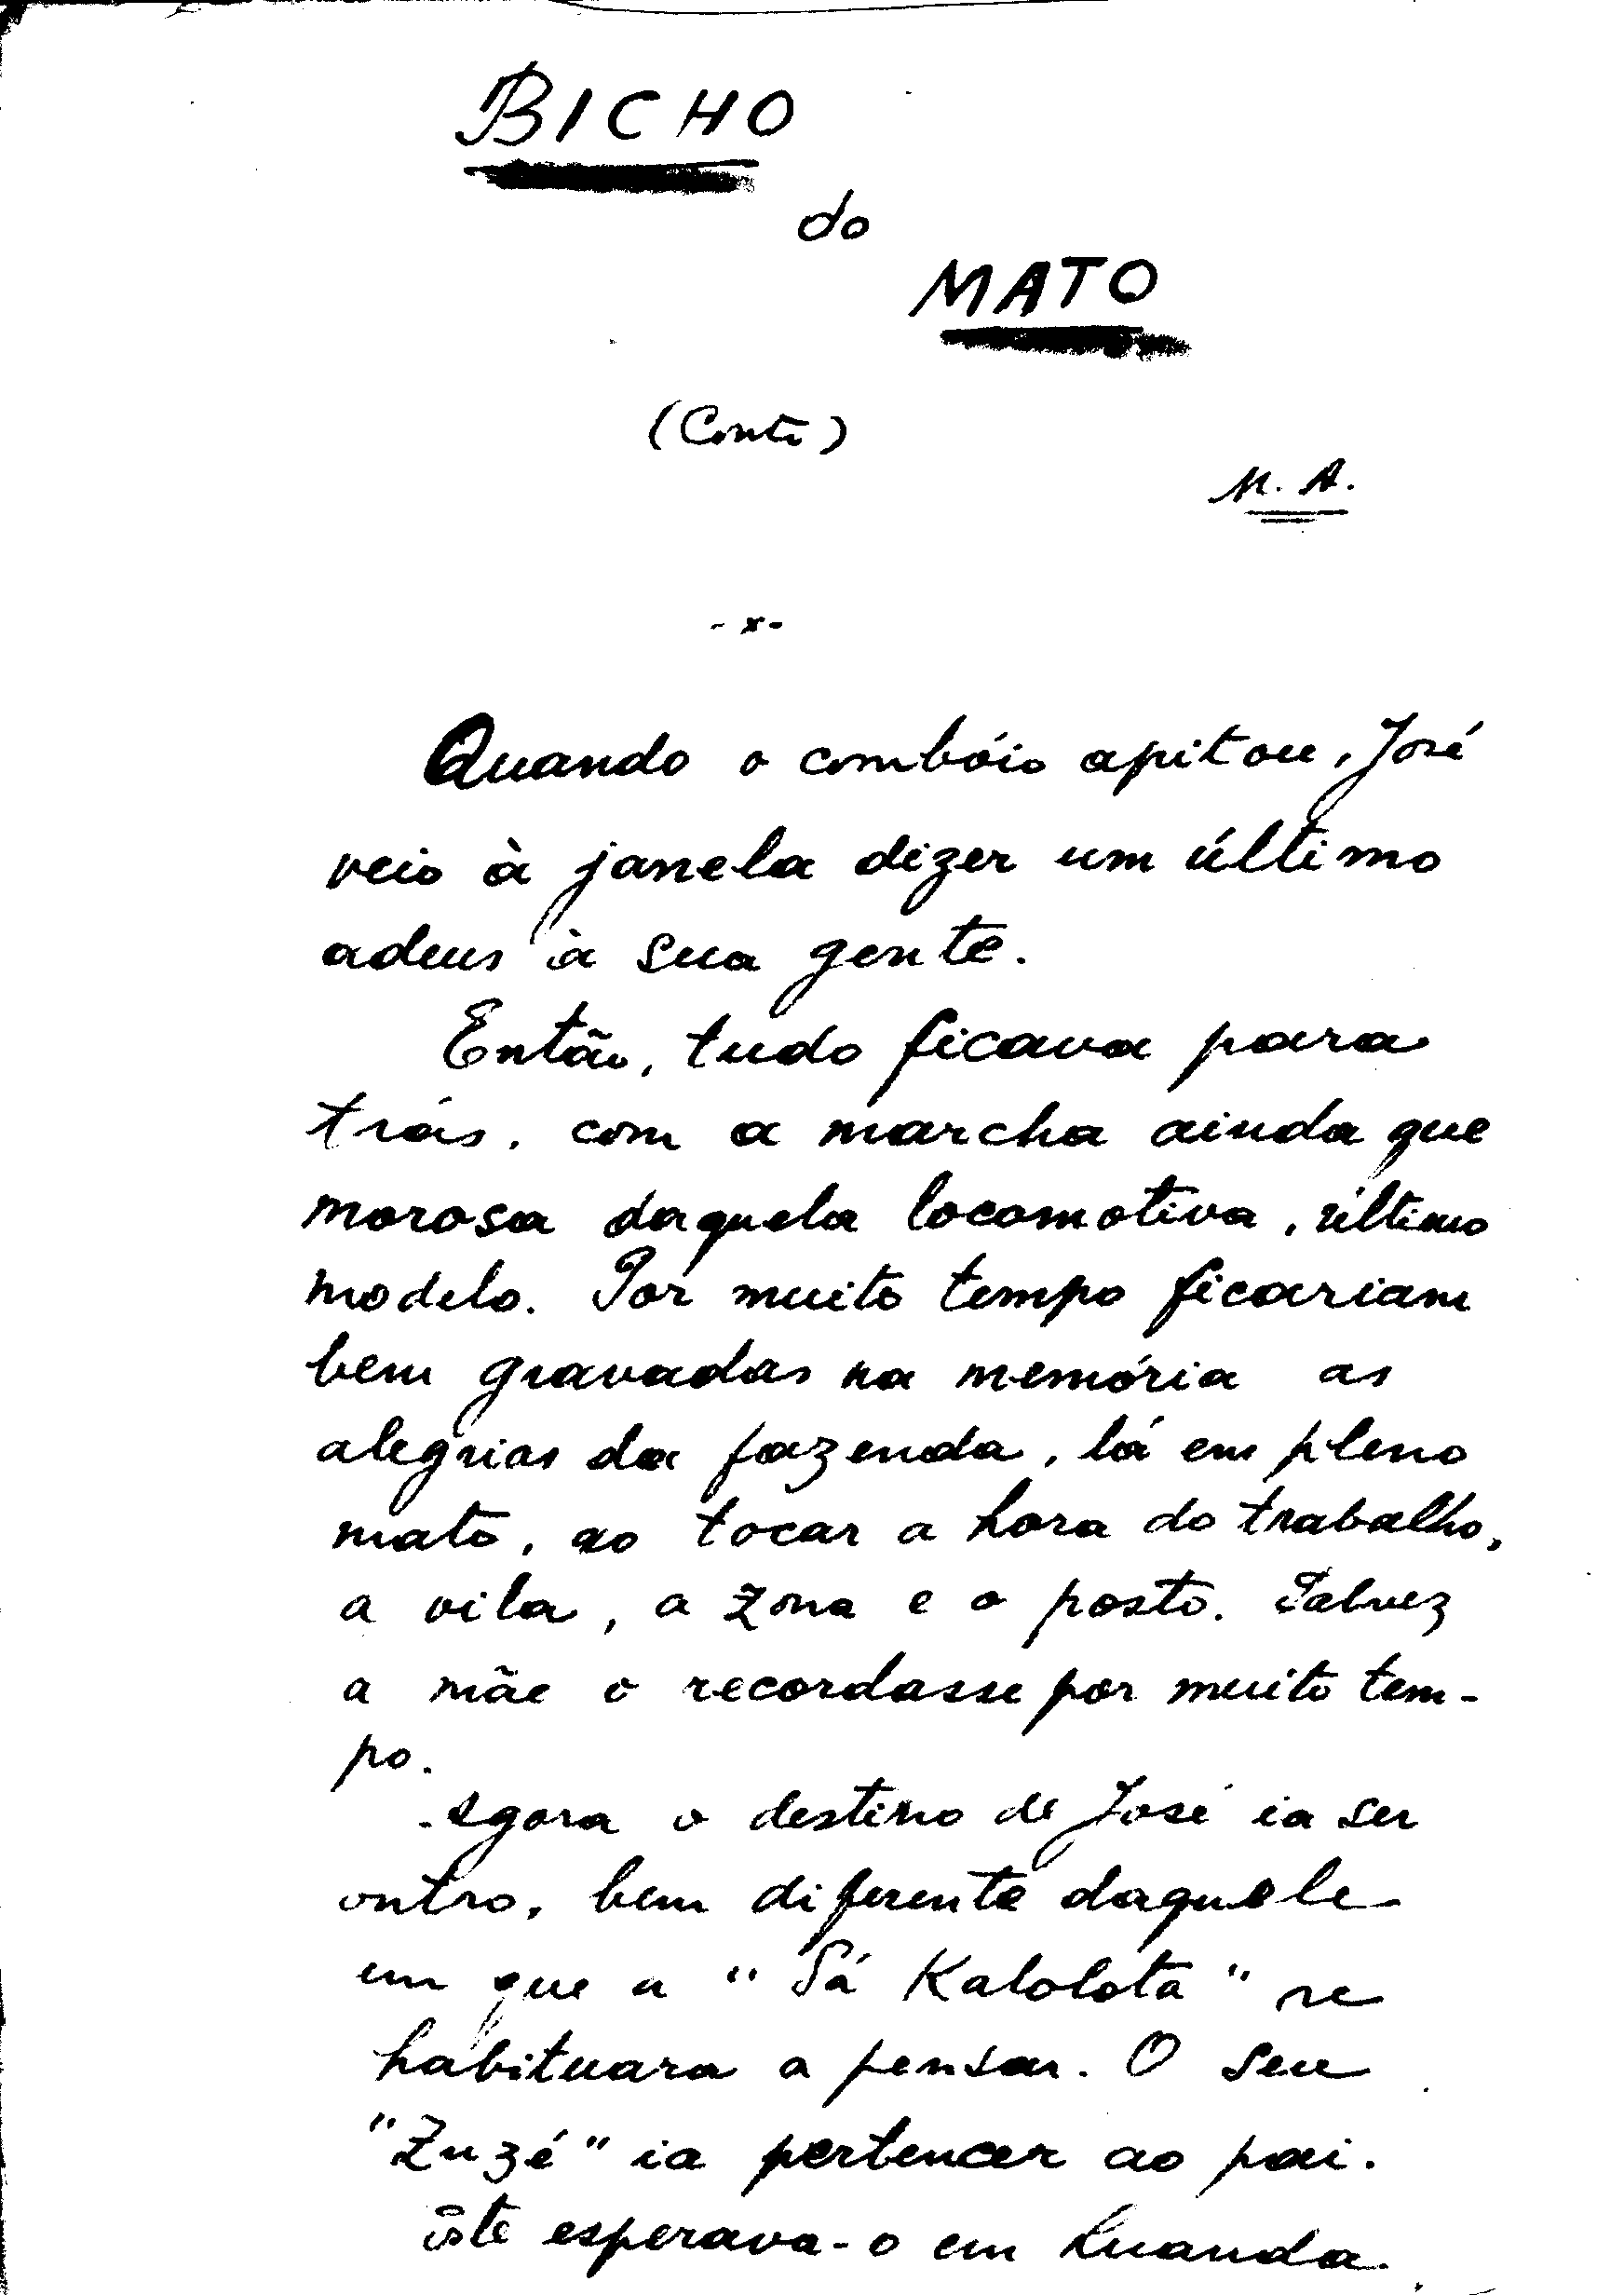 BICHO
do
MATO
(Conto)
M. A.
- x -
Quando o combóio apitou, José
veio à janela dizer um último
adeus à sua gente.
Então, tudo ficava para
trás, com a marcha ainda que
morosa daquela locomotiva, último
modelo. Por muito tempo ficariam
bem gravadas na memória as
alegrias da fazenda, lá em pleno
mato, ao tocar a hora do trabalho,
a vila, a zona e o posto. Talvez
a mãe o recordasse por muito tem-
po.
Agora o destino de José ia ser
outro, bem diferente daquele
em que a "Sá Kalolota" se
habituara a pensar. O seu
"Zuzé" ia pertencer ao pai.
Êste esperava-o em Luanda.